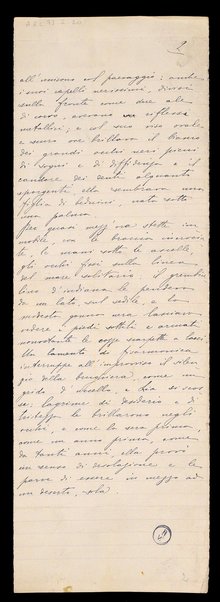 2
all'unisono col paesaggio: anche
i suoi capelli nerissimi, divisi
sulla fronte come due ali
di corvo, avevano riflessi
metallici; e col suo viso ovale
e scuro ove brillava il bianco
dei grandi occhi neri pieni
di sogni e di diffidenza e il
candore dei denti alquanto
sporgenti ella sembrava una
figlia di beduini, nata sotto
una palma.
Per quasi mezz'ora stette im-
mobile, con le braccia incrocia-
te, le mani sotto le ascelle,
gli occhi fissi sulla linea
del mare solitario. Il grembiu-
lino d'indiana le pendeva
da un lato, sul sedile, e la
modesta gonna nera lasciava
vedere i piedi sottili e arcuati
nonostante le rozze scarpette a lacci.
Un lamento di fisarmonica
interruppe all'improvviso il silen-
zio della brughiera, come un
grido d'uccello: ed ella si scos-
se: lagrime di desiderio e di
tristezza le brillarono negli
occhi, e come la sera prima,
come un anno prima, come
da tanti anni, ella provò
un senso di desolazione e le
parve di essere in mezzo ad
un deserto, sola.